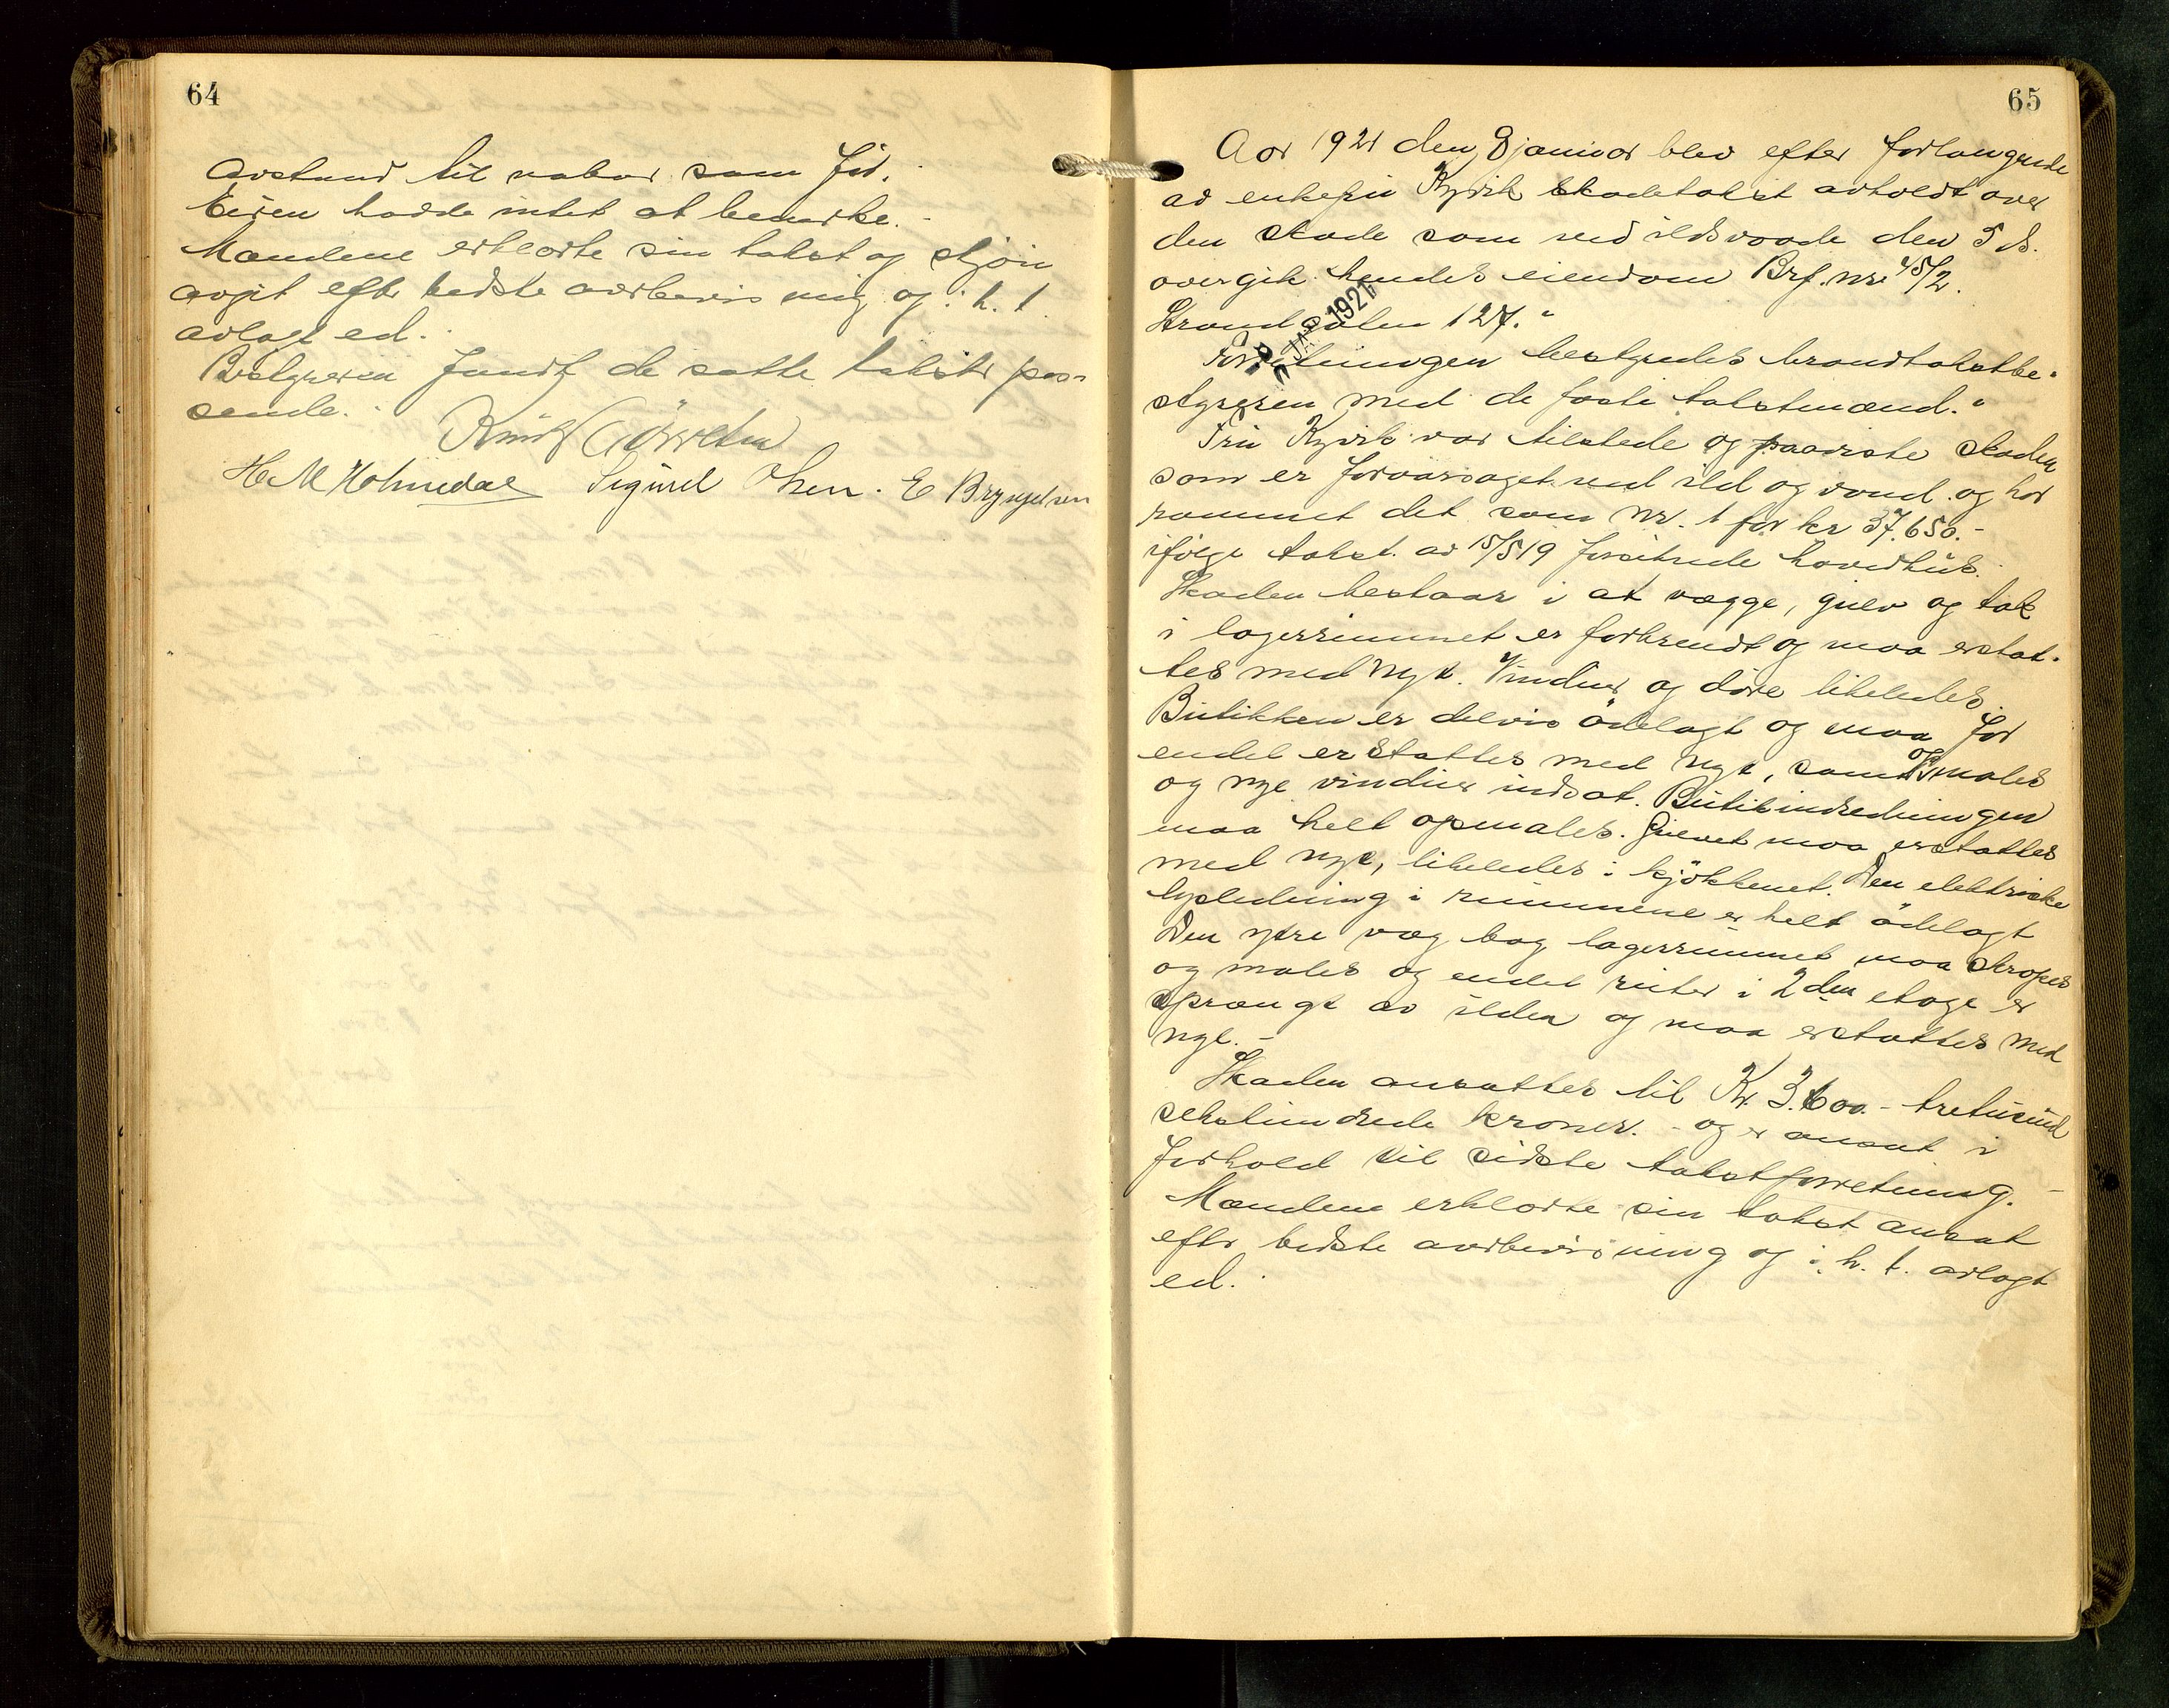 64
avstand til nabor som før.
Eieren hadde intet at bemerke.-
Mændene erklærte sin takst og skjøn
avgit efter bedste overbevisning og i h. t.
avlagt ed.-
Bestyreren fandt de satte takster pas-
sende.-
H M Holmedal Sigurd Olsen. E Bryngelsen
65
Aar 1921 den 8 januar blev efter forlangende
av enkefru Kyvik skadetakst avholdt over
den skade som ved ildsvaade den 5 ds.
overgik hendes eiendom Brf. nr. 45/2.
Strandgaten 127."
JAN 1921
Forretningen bestyredes brandtakstbe-
styreren med de faste takstmænd."
Fru Kyvik var tilstede og paaviste skaden
som er foraarsaget ved ild og vand og har
rammet det som nr. 1 for kr 37.650.-
ifølge takst. av 15/5 19 forsikrede hovedhus.
Skaden bestaar i at vægge, gulv og tak
i lagerrummet er forbrendt og maa erstat-
tes med nyt. Vinduer og døre likeledes.
Butikken er delvis ødelagt og maa for
endel erstattes med nyt, samt opmales
og nye vinduer indsat. Butikindredningen
maa helt opmales. Gulvet maa erstattes
med nye, likeledes i kjøkkenet. Den elektriske
lysledning i rummene er helt ødelagt
Den ytre væg bag lagerrummet maa skrapes
og males og endel ruter i 2den etage er
sprængt av ilden og maa erstattes med
nye.-
Skaden ansættes til Kr. 3.600.- tretusind
sekshundrede kroner. - og er ansat i
forhold til sidste takstforretning.-
Mændene erklærte sin takst ansat
efter bedste overbevisning og i h. t. avlagt
ed.-